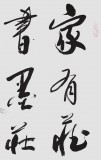 家有藏
書墨莊